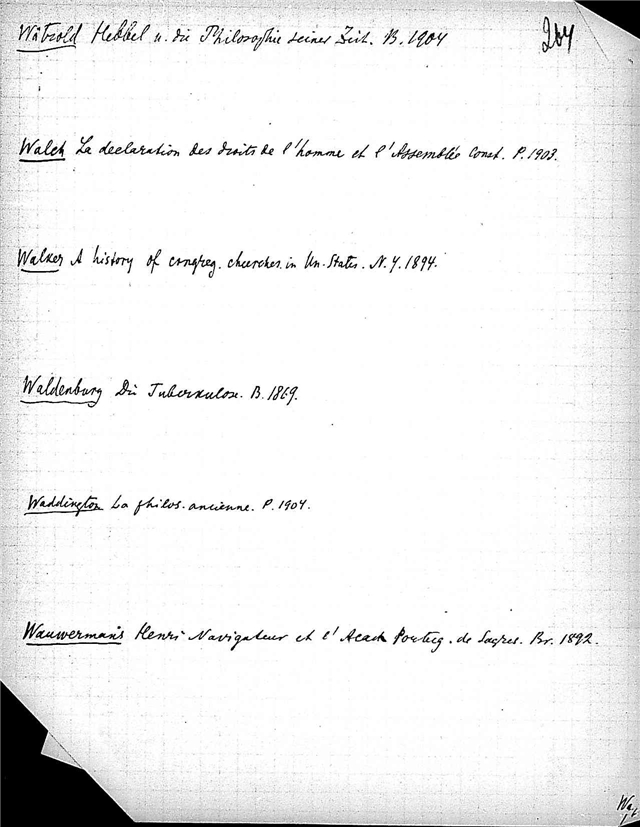 264
Wätzold Hebbel u. die Philosophie seiner Zeit. B. 1904
Walch La declaration des droits de l'homme et l'Assemblée Const. P. 1903.
Walker A history of congreg. churches in Un. States. N.Y. 1894.
Waldenburg Die Tuberkulose. B. 1869.
Waddington La philos. ancienne. P. 1904.
Wauwermans Henri Navigateur et l'Acad Portug. de Sagres. Br. 1892.